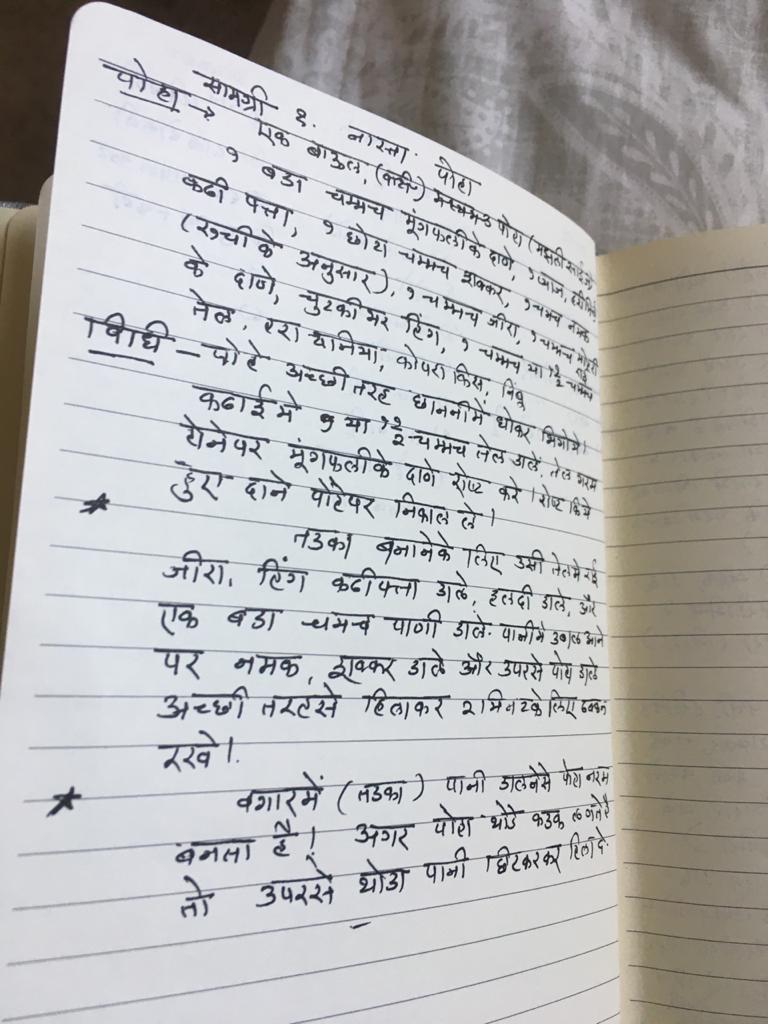 सामग्री १. नास्ता. पोहा
पोहा → एक बाऊल, (वाटी) मध्यम पोहा
१ बडा चम्मच मूंगफलीके दाणे, १ प्याज, हरी मिर्च
कढी पत्ता, १ छोटा चम्मच शक्कर, १ चमच नमक
(रूची के अनुसार), १ चम्मच जीरा, १ चमच मोहरी
के दाणे, चुटकीभर हिंग, १ चम्मच या १ १/२ चम्मच
तेल, हरा धनिया, कोपरा किस, निंबू
विधि – पोहे अच्छीतरह छाननीमें धोकर भिगोये।
कढाईमे १ या १ १/२ चम्मच तेल डाले तेल गरम
होनेपर मूंगफलीके दाणे रोष्ट करे। रोष्ट किये
हुए दाने पेपर निकाल ले।
तडका बनानेके लिए उसी तेलमे राई
जीरा, हिंग कढीपत्ता डाले, हलदी डाले, और
एक बडा चमच पाणी डाले. पानीमे उबाल आने
पर नमक, शक्कर डाले और उपरसे पोहा डाले
अच्छी तरहसे हिलाकर २ मिनटके लिए ढक्कन
रखे।
वगारमें (तडका) पानी डालनेसे पोहा नरम
बनता है। अगर पोहा थोडे कडक लगते है
तो उपरसे थोडा पानी छिटकरकर हिला दे.